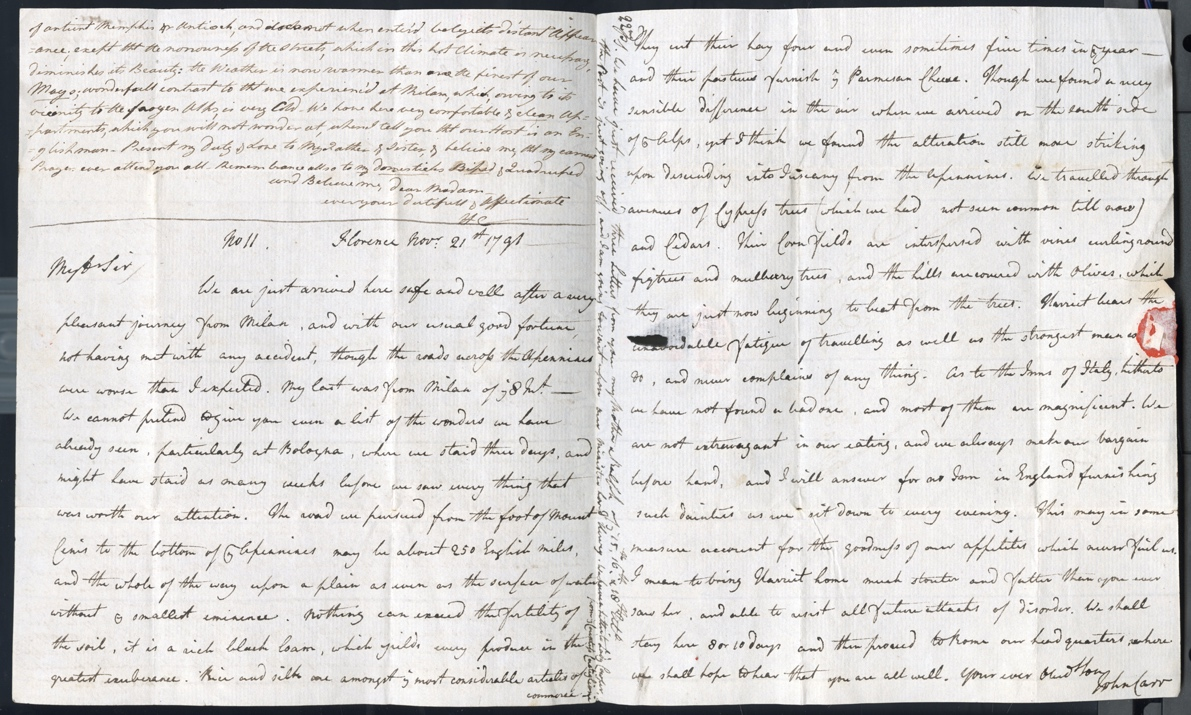 of antient Memphis & Antioch, and does not when enter'd belye its distant Appear-
-ance, exept tht the narrowness of the Streets, which in this hot Climate is necessary,
diminishes its Beauty: the Weather is now warmer than are the finest of our
Mays; wonderfull contrast to tht we experienc'd at Milan, which, owing to its
vicinity to the Alps, is very Cold. We have here very comfortable & clean Ap-
-partments, which you will not wonder at, when I tell you tht our Host is an En-
-glishman. Present my Duty & Love to My Father & Sisters & believe me, tht my earnest
Prayers ever attend you all. Remembrance also to my domesticks Biped & Quadruped
and Believe me, dear Madam
ever your dutifull & Affectionate
HC
No 11. Florence Novr. 21st 1791
My Dr Sir
We are just arrived here safe and well after a very
pleasant journey from Milan, and with our usual good fortune
not having met with any accident, though the roads across the Apennines
were worse than I expected. My last was from Milan of ye 8 Inst. —
We cannot pretend to give you even a list of the wonders we have
already seen, particularly at Bologna, where we staid three days, and
might have staid as many weeks before we saw every thing that
was worth our attention. The road we pursued from the foot of Mount
Cenis to the bottom of ye Apennines may be about 250 English miles,
and the whole of the way upon a plain as even as the surface of water
without ye smallest eminence. Nothing can exceed the fertility of
the soil, it is a rich black loam, which yields every produce in the
greatest exuberance. Rice and silk are amongst ye most considerable articles of
commerce —
We have just received three letters from you my Mother & Ralph of ye 15. 16th & 18th
the Post is just going off, and I am going to
They cut their hay four and even sometimes five times in ye year —
and their pastures furnish ye Parmesan Cheese. Though we found a very
sensible difference in the air when we arrived on the south side
of ye Alps, yet I think we found the alteration still more striking
upon descending into Tuscany from the Apennines. We travelled through
avenues of Cypress trees (which we had not seen common till now)
and Cedars. Their Corn fields are interspersed with vines curling round
figtrees and mulberry trees, and the hills are covered with Olives, which
they are just now beginning to beat from the trees. Harriet bears the
unavoidable fatigue of travelling as well as the strongest man could
do, and never complains of any thing. As to the Inns of Italy, hitherto
we have not found a bad one, and most of them are magnificent. We
are not extravagant in our eating, and we always make our bargain
before hand, and I will answer for no Inn in England furnishing
such dainties as we sit down to every evening. This may in some
measure account for the goodness of our appetites which never fail us.
I mean to bring Harriet home much stouter and fatter than you ever
saw her, and able to resist all future attacks of disorder. We shall
stay here 8 or 10 days and then proceed to Rome our head quarters, where
we shall hope to hear that you are all well. Your ever Obedt Son
John Carr